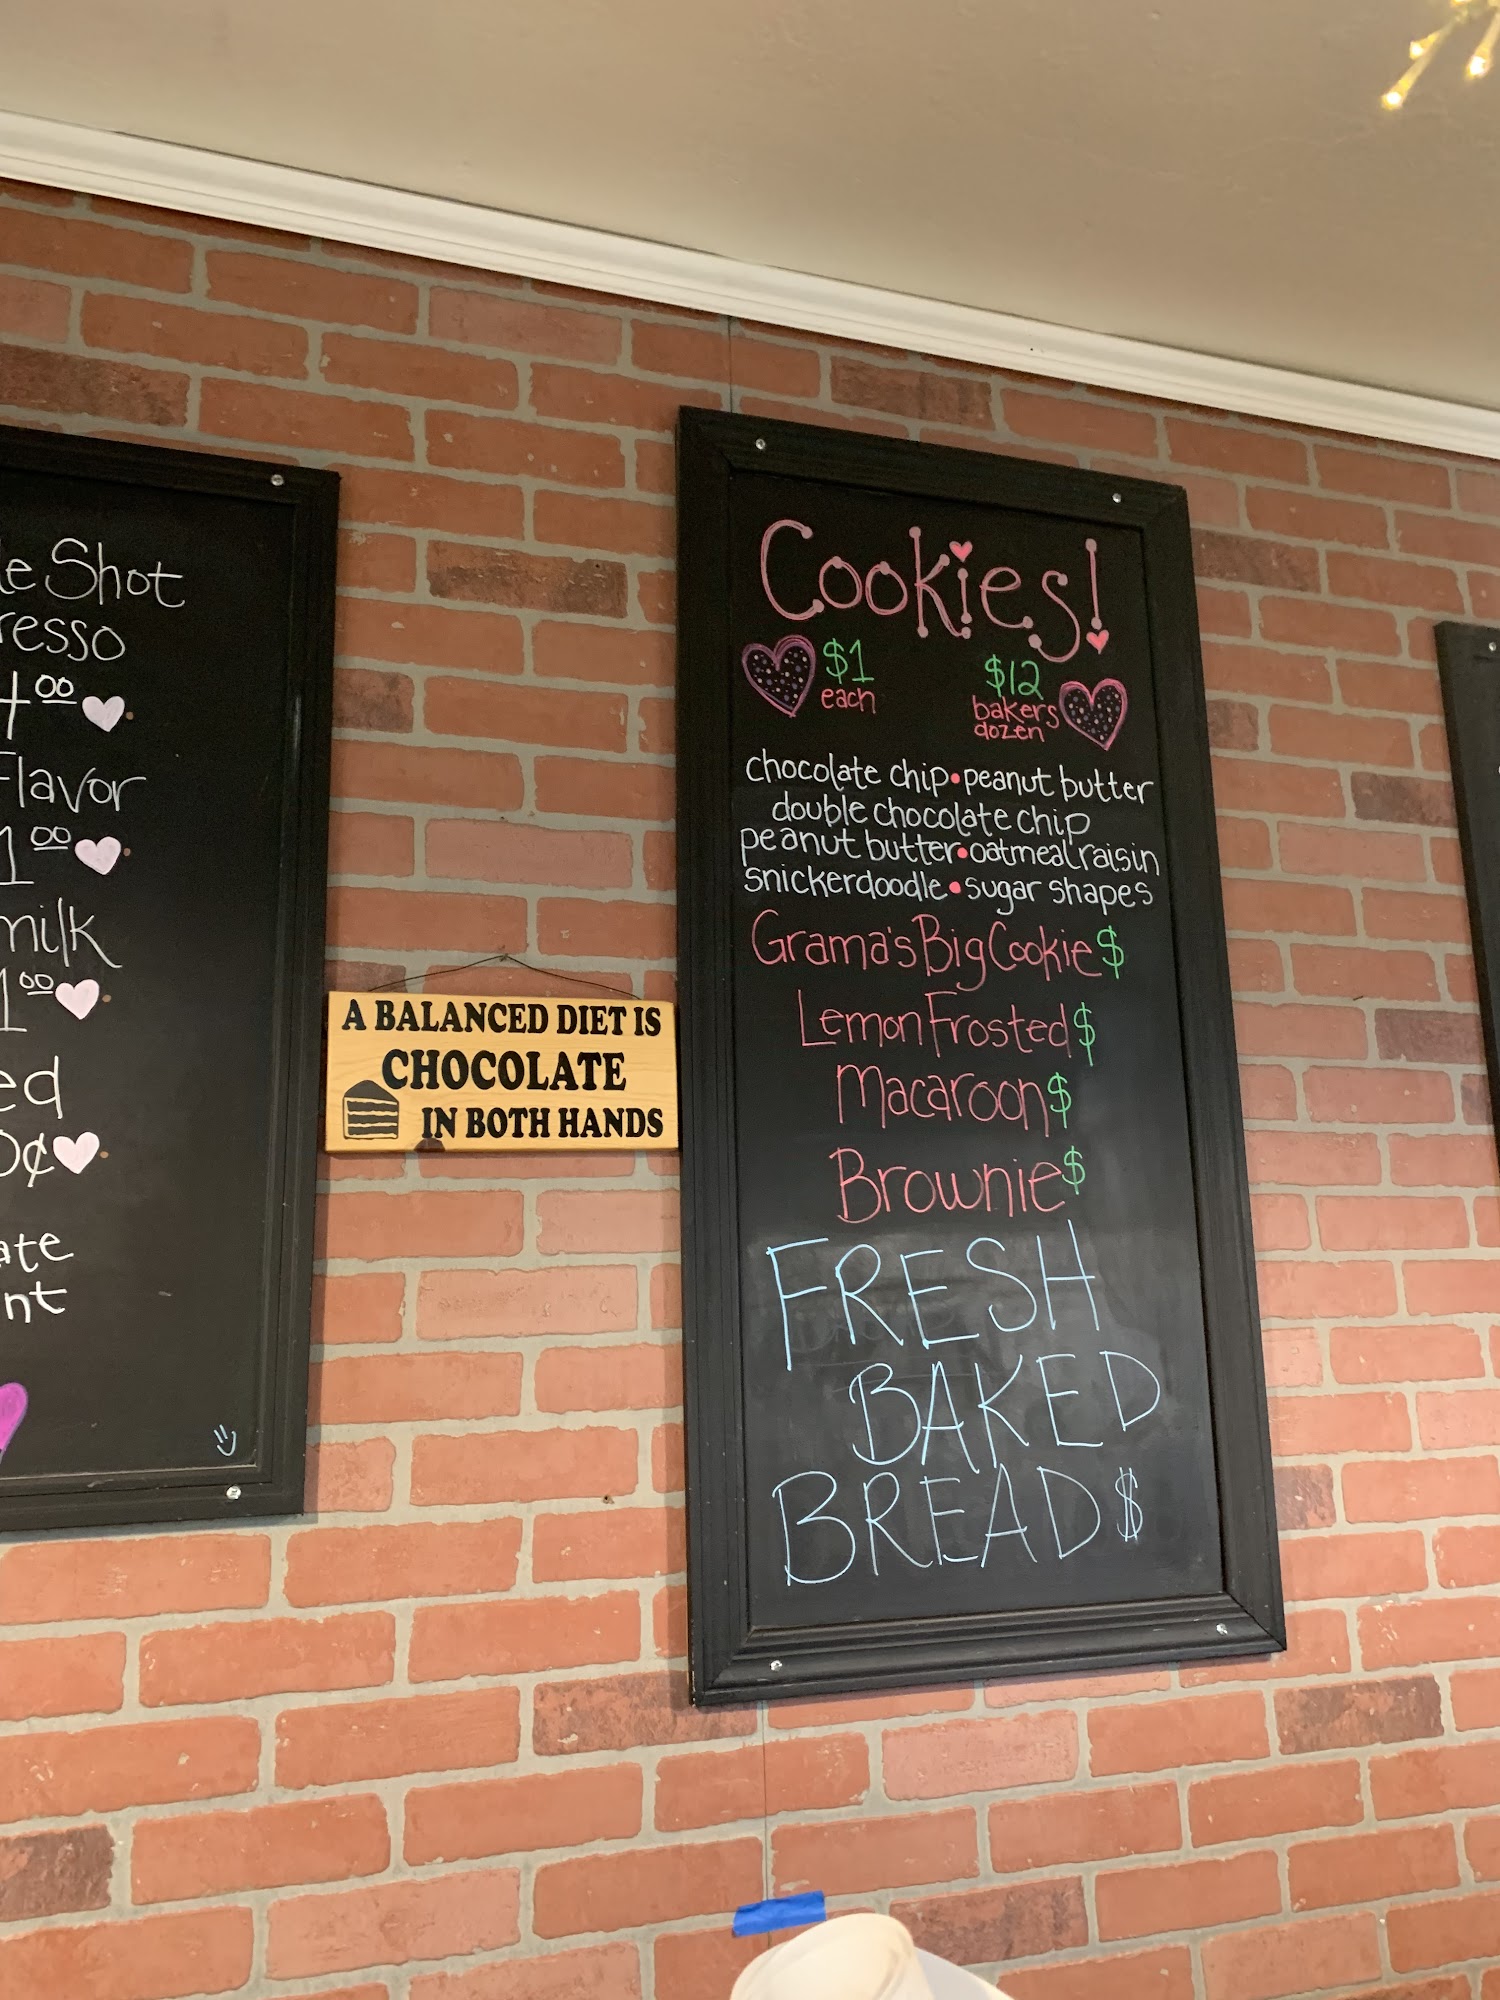 Shot
4⁰⁰
Flavor
1⁰⁰
milk
1⁰⁰
A BALANCED DIET IS
CHOCOLATE
IN BOTH HANDS
Cookies!
$1
each
$12
bakers
dozen
chocolate chip•peanut butter
double chocolate chip
peanut butter•oatmeal raisin
snickerdoodle•sugar shapes
Grama's Big Cookie $
Lemon Frosted $
Macaroon $
Brownie $
FRESH
BAKED
BREAD $